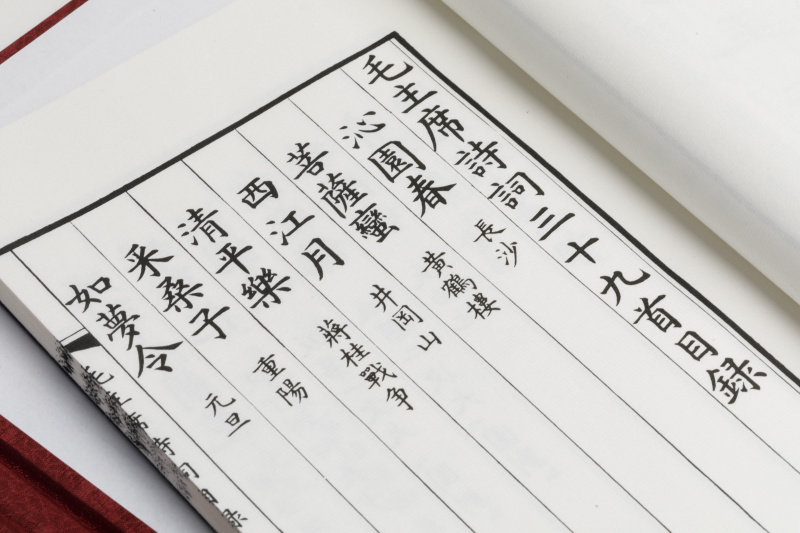 毛主席詩詞三十九首目録
沁園春 長沙
菩薩蠻 黄鶴樓
西江月 井岡山
清平樂 蔣桂戰争
采桑子 重陽
如夢令 元旦